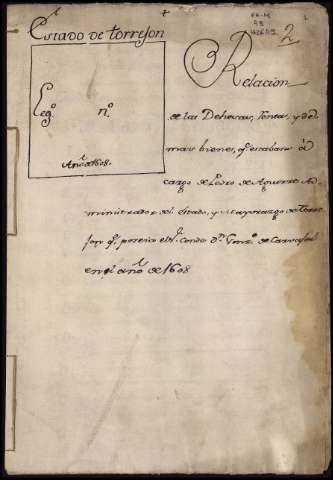 Estado de torrejon
2
Relacion
Leg.º n.º
de las Dehesas, Rentas, y de
mas bienes, q.e estaban à
Año de 1608.
cargo de Pedro de Aguerre Ad-
ministrador del Estado, y Mayorazgo de torre
jon q.e poseia el S.r Conde D.n de Carvajal
en el año de 1608